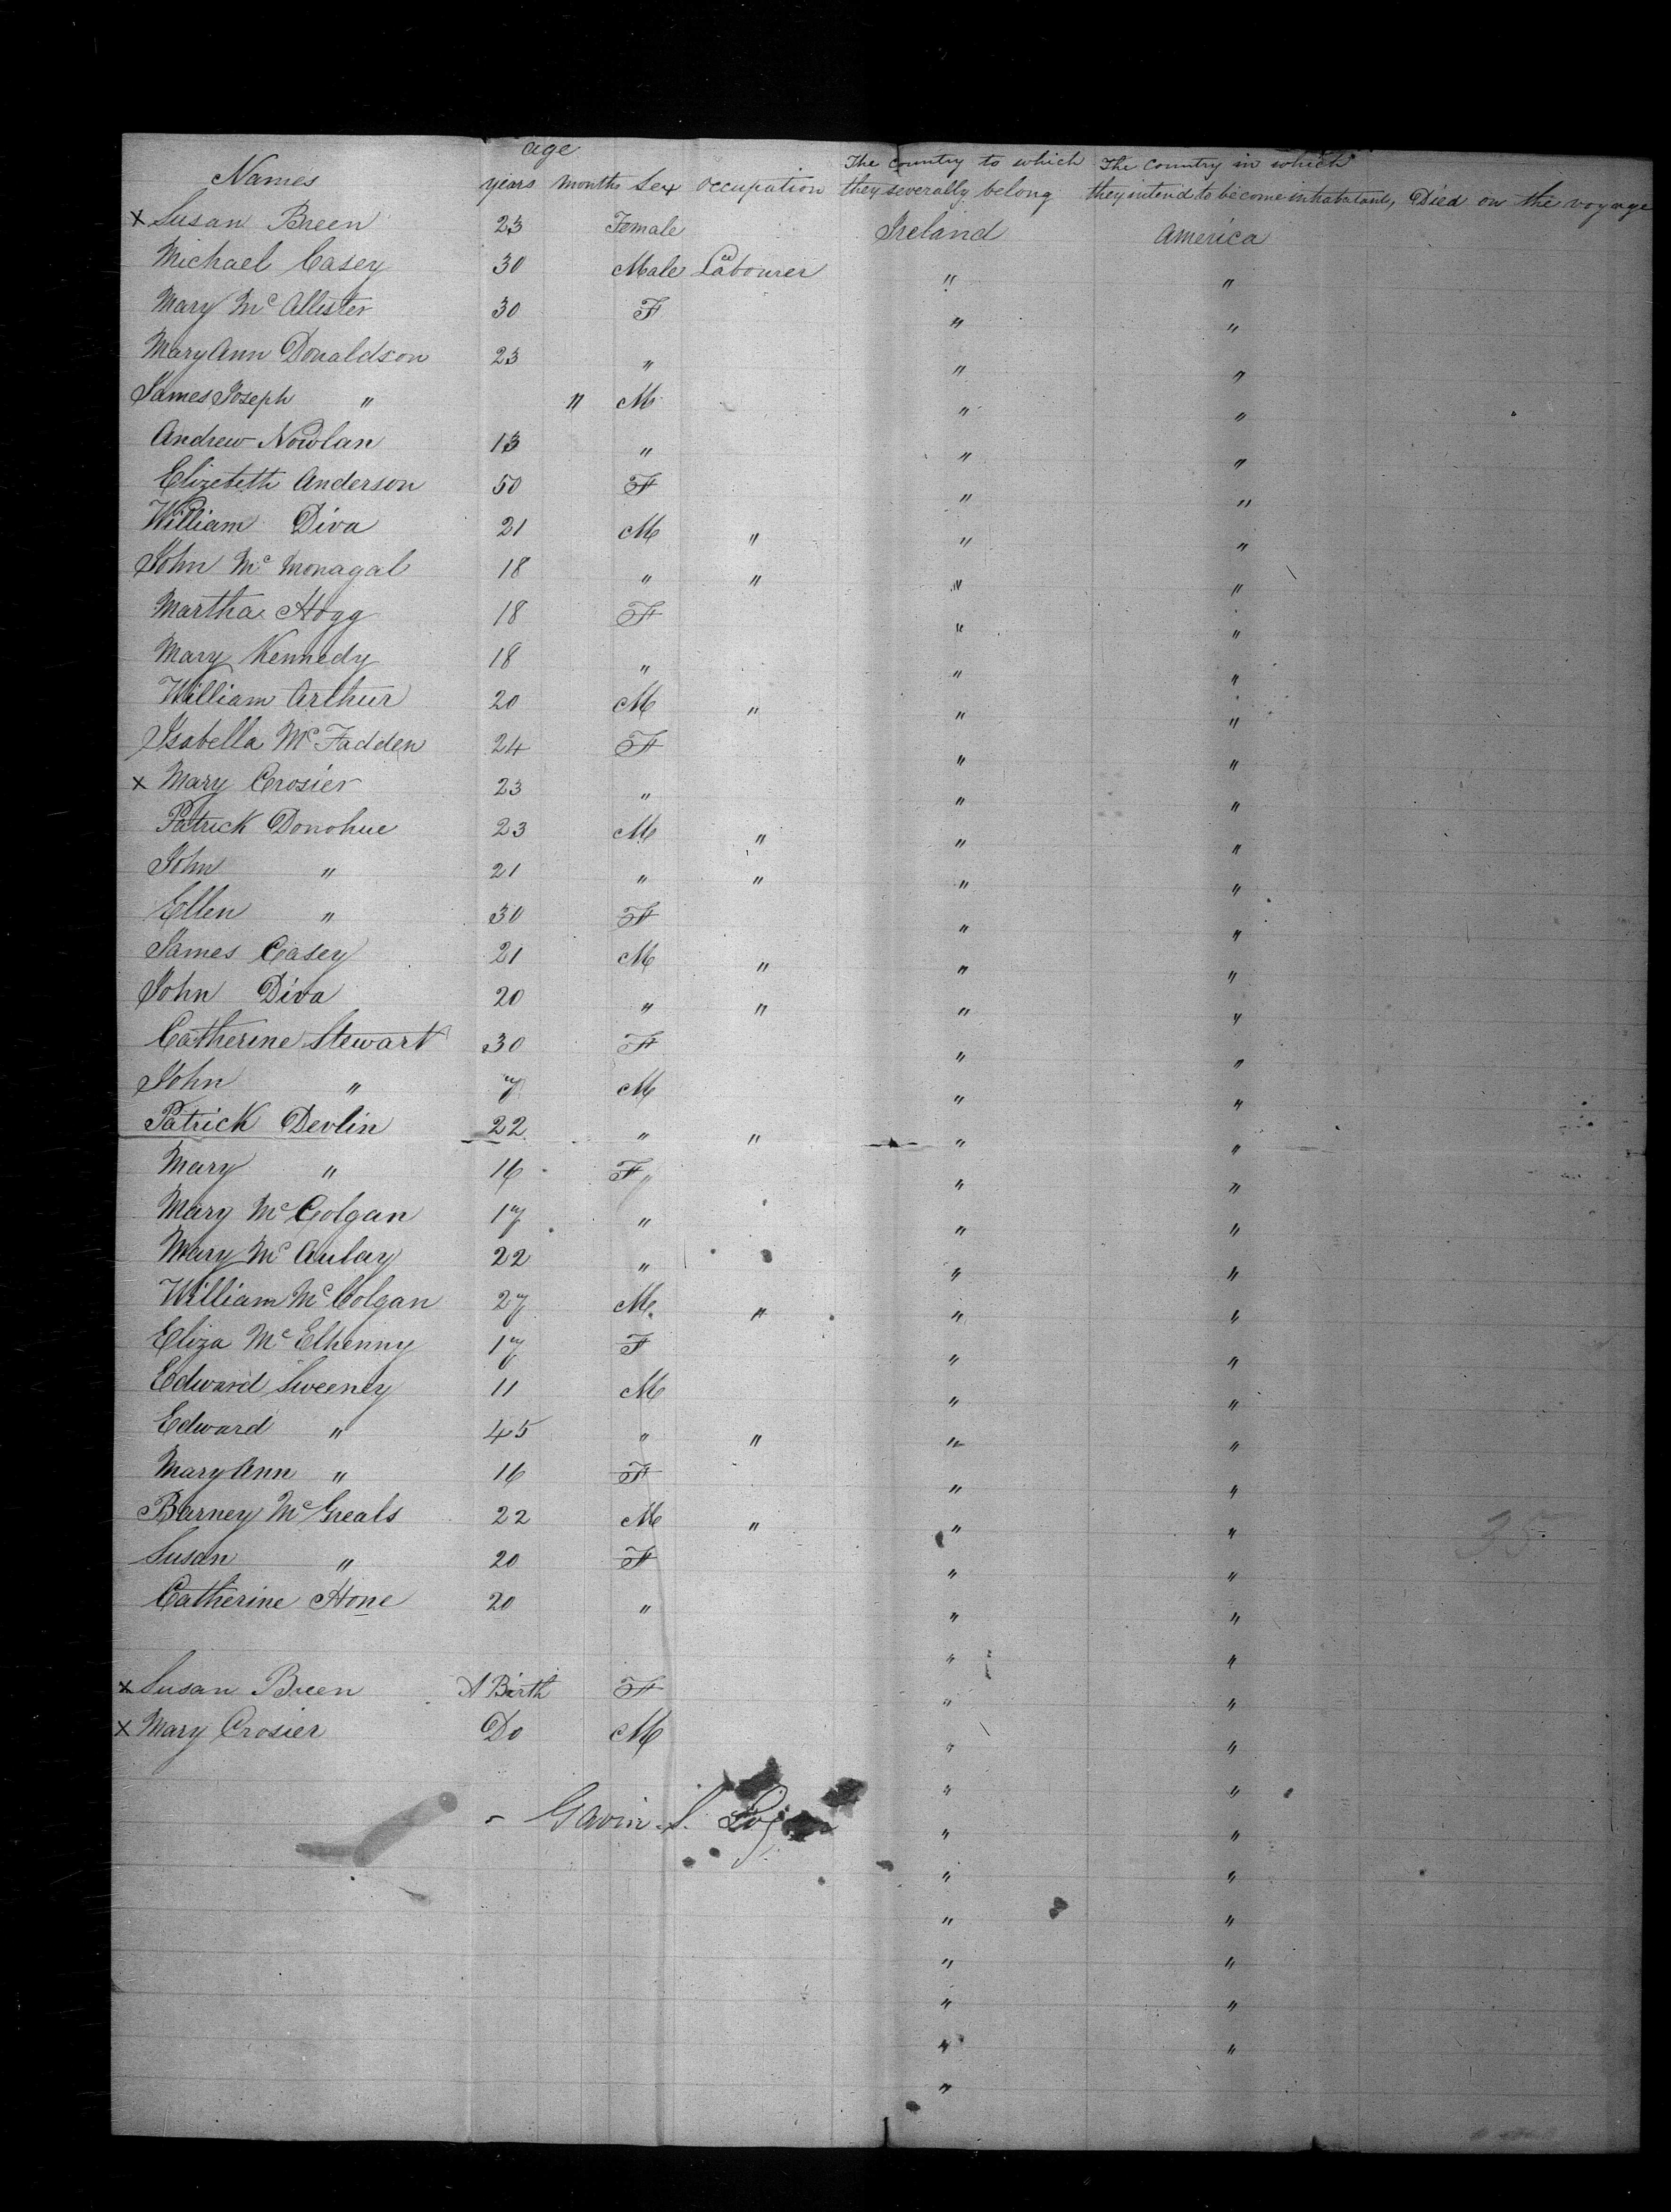 age
Names years months Sex occupation The country to which they severally belong The country in which they intend to become inhabitants, Died on the voyage
x Susan Breen 23 Female Ireland America
Michael Casey 30 Male Labourer " "
Mary Mc Allister 30 F " "
Mary Ann Donaldson 23 " " "
James Joseph " 11 M " "
Andrew Nowlan 13 " " "
Elizebeth Anderson 50 F " "
William Diva 21 M " " "
John Mc Monagal 18 " " " "
Martha Hogg 18 F " "
Mary Kennedy 18 " " "
William Arthur 20 M " " "
Isabella Mc Fadden 24 F " "
x Mary Crosier 23 " " "
Patrick Donohue 23 M " " "
John " 21 " " " "
Ellen " 30 F " "
James Casey 21 M " " "
John Diva 20 " " " "
Catherine Stewart 30 F " "
John " 7 M " "
Patrick Devlin 22 " " " "
Mary " 16 F " "
Mary Mc Colgan 17 " " "
Mary Mc Aulay 22 " " "
William Mc Colgan 27 M " " "
Eliza Mc Elhenny 17 F " "
Edward Sweeney 11 M " "
Edward " 45 " " " "
Mary Ann " 16 F " "
Barney Mc Greals 22 M " " " 35
Susan " 20 F " "
Catherine Hone 20 " " "
" "
x Susan Breen A Birth F " "
x Mary Crosier Do M " "
" "
Gavin S. " "
" "
" "
" "
" "
" "
"